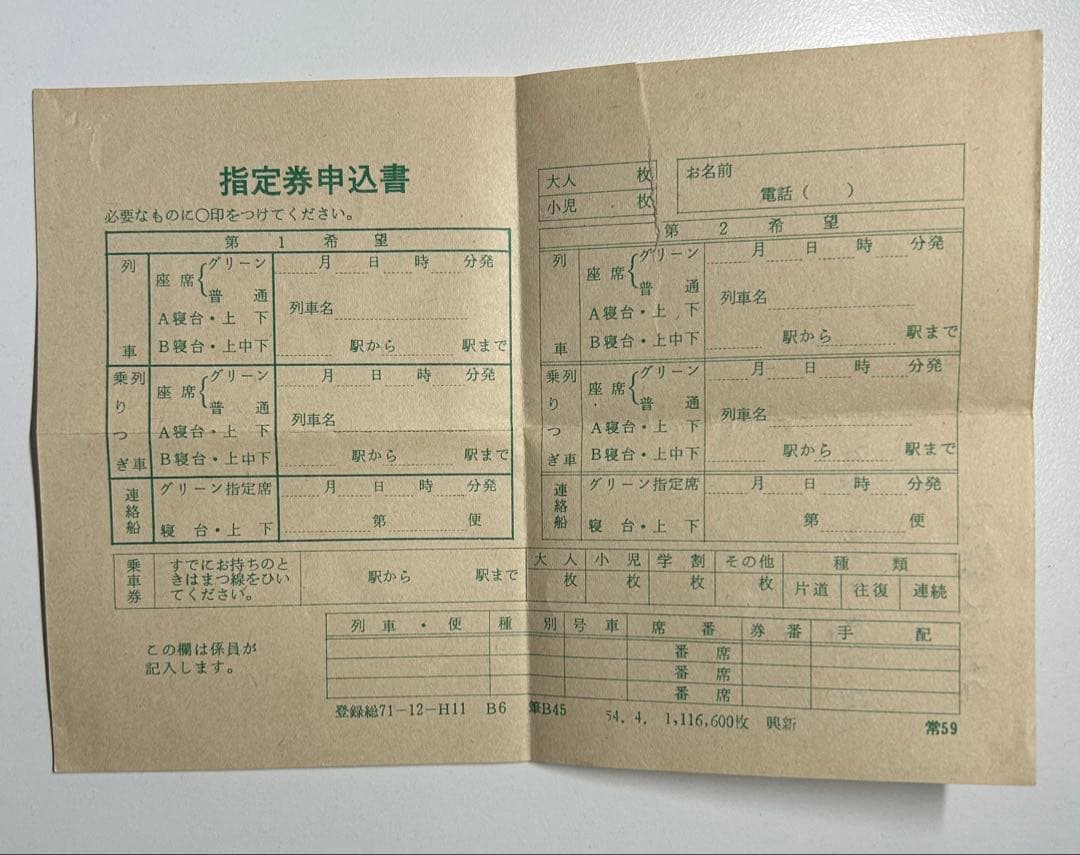 指定券申込書
必要なものに〇印をつけてください。
大人 枚
小児 枚
お名前
電話( )
第 1 希 望
列車
座席{グリーン
普 通
A寝台・上 下
B寝台・上中下
月 日 時 分発
列車名
駅から 駅まで
乗りつぎ列車
座席{グリーン
普 通
A寝台・上 下
B寝台・上中下
月 日 時 分発
列車名
駅から 駅まで
連絡船
グリーン指定席
寝 台・上 下
月 日 時 分発
第 便
第 2 希 望
列車
座席{グリーン
普 通
A寝台・上 下
B寝台・上中下
月 日 時 分発
列車名
駅から 駅まで
乗りつぎ列車
座席{グリーン
普 通
A寝台・上 下
B寝台・上中下
月 日 時 分発
列車名
駅から 駅まで
連絡船
グリーン指定席
寝 台・上 下
月 日 時 分発
第 便
乗車券
すでにお持ちのと
きはまつ線をひい
てください。
駅から 駅まで
大人 小児 学割 その他 種 類
枚 枚 枚 枚 片道 往復 連続
この欄は係員が
記入します。
列車・便 種別 号車 席番 券番 手配
番 席
番 席
番 席
登録総71-12-H11 B6 筆B45 54.4. 1,116,600枚 興新
常59